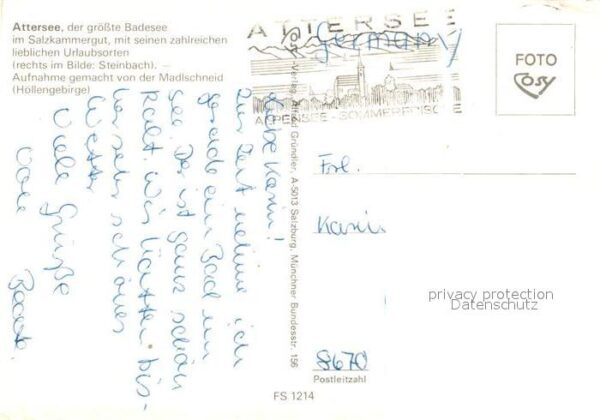 Attersee, der größte Badesee
im Salzkammergut, mit seinen zahlreichen
lieblichen Urlaubsorten
(rechts im Bilde: Steinbach). —
Aufnahme gemacht von der Madlschneid
(Höllengebirge)
ATTERSEE
Germany
ALPENSEE - SOMMERFRISCHE
FOTO
Cosy
Cosy-Verlag Alfred Gründler, A-5013 Salzburg, Münchner Bundesstr. 156
Liebe Karin!
Zur Zeit nehme ich
gerade ein Bad im
See. Der ist ganz schön
kalt. Wir hatten bis-
her sehr schönes
Wetter
Viele Grüße
von
Beate.
Frl.
Karin
privacy protection
Datenschutz
8670
Postleitzahl
FS 1214